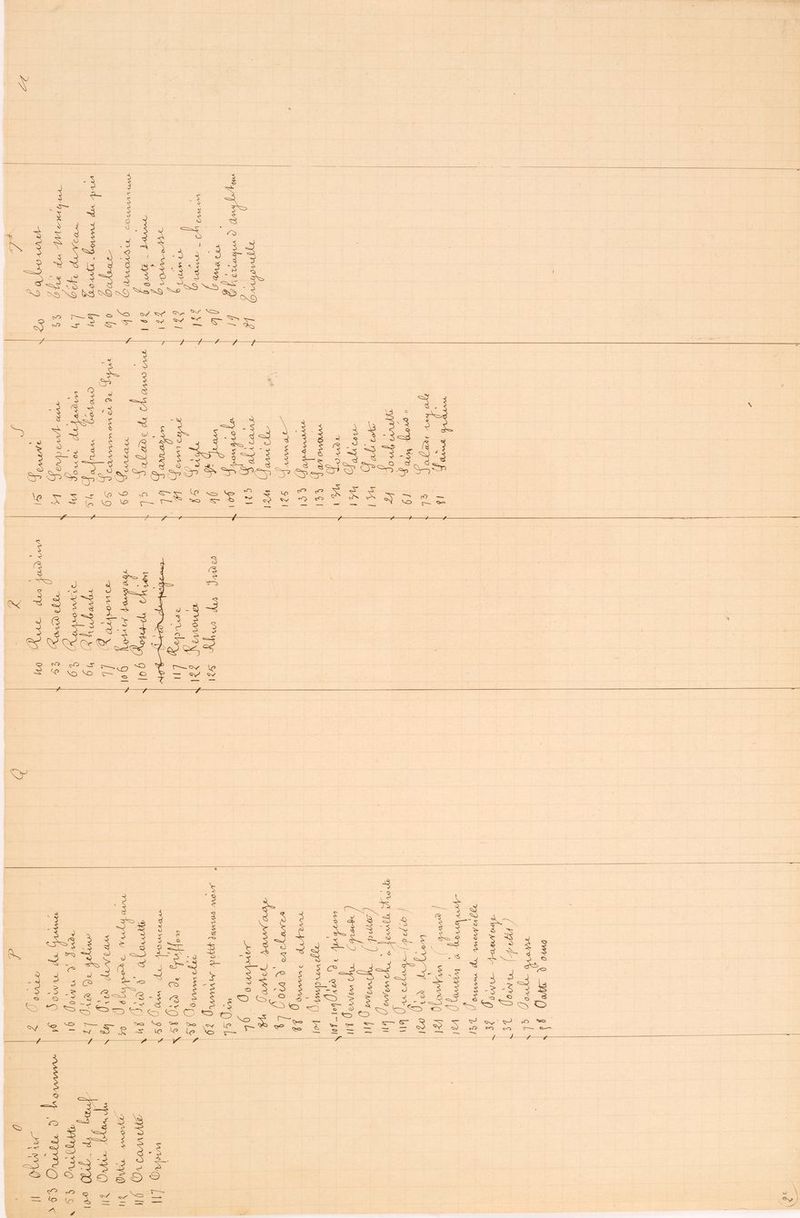 O
11 Olivier
53 Oreille d'homme
53 Oreillette
100 Œil de bœuf
112 Ortie blanche
112 Ortie morte
116 Orcanette
117 Orpin
P
2 Poirée
16 Poivre de Guinée
16 Poivre d'Inde
27 Pied de gelin
29 Pied de veau
30 Polypode vulgaire
48 Pied d'alouette
56 Pain de pourceau
58 Pied de Griffon
58 Pommelée
62 Prunier petit damas noir
75 Pin
76 Pourpier
84 Pastel sauvage
87 Pois d'esclaves
88 Pomme de terre
101 Pimprenelle
107-109 Pied de pigeon
118 Pervenche (grande)
119 Pervenche (petite)
119 Pervenche à feuille étroite
119 Pucelage (petit)
120 Pied de lion
121 Plantin (grand)
121 Plantin à bouquet
132 Pomme de merveille
32 Poivre sauvage
32 Poivre (petit)
73 Poule grasse
98 Patte d'ours
Q
R
40 Rue des jardins
53 Rondelle
63 Rapontic
64 Rhubarbe
77 Raiponce
106 Rosier sauvage
106 Rose de chien
117 Reprise
122 Renouée
125 Rhus des Indes
S
15 Senevé
31 Serpentaire
41 Souci de jardin
54 Safran bâtard
65 Scammonée de Syrie
66 Sureau
73 Salade de chanoine
79 Sarrazin
81
85 Seigle
96 St Jean
105 Spongiola
123 Salicaire
124 Sanicle
125 Sumac
133 Saponaire
133 Savonaire
134 Soude
134 Salicor
134 Salicote
21 Soubeirette
61 Sain bois
73 Salade royale
81 Saine graine
T
20 Tabouret
33 Thé du Mexique
47 Tête de veau
49 Toute-bonne des prés
90 Tabac
96 Tanaisie commune
102 Toute-saine
122
122 Traînée
122 Traîne-chemin
96 Tanacée
19 Thériaque d'angleterre
81
U